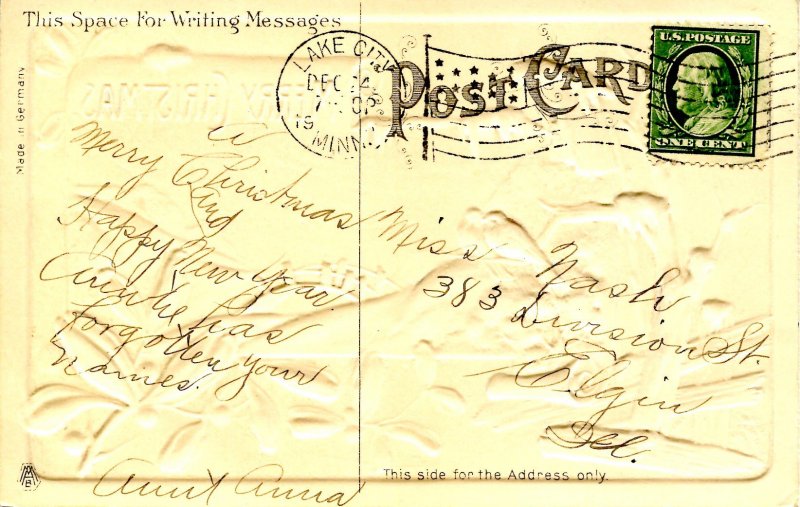 This Space For Writing Messages
POST CARD
U.S. POSTAGE
ONE CENT
LAKE CITY
DEC 24
MINN.
Made in Germany
A
Merry Christmas
and
Happy New Year
Auntie has
forgotten your
names.
Aunt Anna
Miss Nash
383 Division St.
Elgin
Ill.
This side for the Address only.
MERRY CHRISTMAS